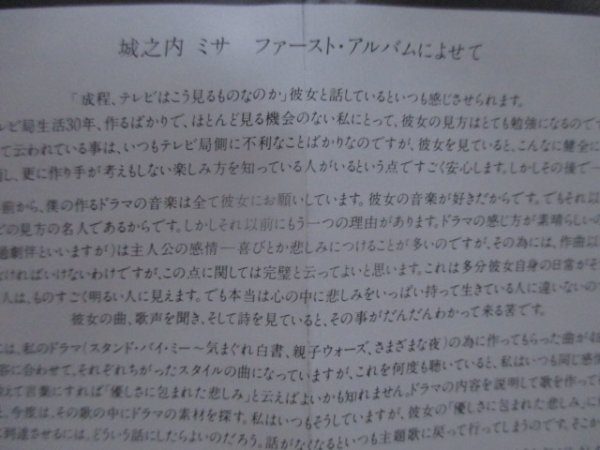 城之内 ミサ　ファースト・アルバムによせて
「成程、テレビはこう見るものなのか」彼女と話しているといつも感じさせられます。
レビ局生活30年、作るばかりで、ほとんど見る機会のない私にとって、彼女の見方はとても勉強になるのです
て云われている事は、いつもテレビ局側に不利なことばかりなのですが、彼女を見ていると、こんなに健全に
し、更に作り手が考えもしない楽しみ方を知っている人がいるという点ですごく安心します。しかしその後で一
前から、僕の作るドラマの音楽は全て彼女にお願いしています。彼女の音楽が好きだからです。でもそれ以
どの見方の名人であるからです。しかしそれ以前にもう一つの理由があります。ドラマの感じ方が素晴らしいの
劇伴といいますが)は主人公の感情―喜びとか悲しみにつけることが多いのですが、その為には、作曲以
なければいけないわけですが、この点に関しては完璧と云ってよいと思います。これは多分彼女自身の日常がそ
人は、ものすごく明るい人に見えます。でも本当は心の中に悲しみをいっぱい持って生きている人に違いないので
彼女の曲、歌声を聞き、そして詩を見ていると、その事がだんだんわかって来る筈です。
には、私のドラマ(スタンド・バイ・ミー〜気まぐれ白書、親子ウォーズ、さまざまな夜)の為に作ってもらった曲が4曲
容に合わせて、それぞれちがったスタイルの曲になっていますが、これを何度も聴いていると、私はいつも同じ感情
えて言葉にすれば「優しさに包まれた悲しみ」と云えばよいかも知れません。ドラマの内容を説明して歌を作って
と、今度は、その歌の中にドラマの素材を探す。私はいつもそうしていますが、彼女の「優しさに包まれた悲しみ」に
に到達させるには、どういう話にしたらよいのだろう。話がなくなるといつも主題歌に戻って行ってしまうのです。そこか